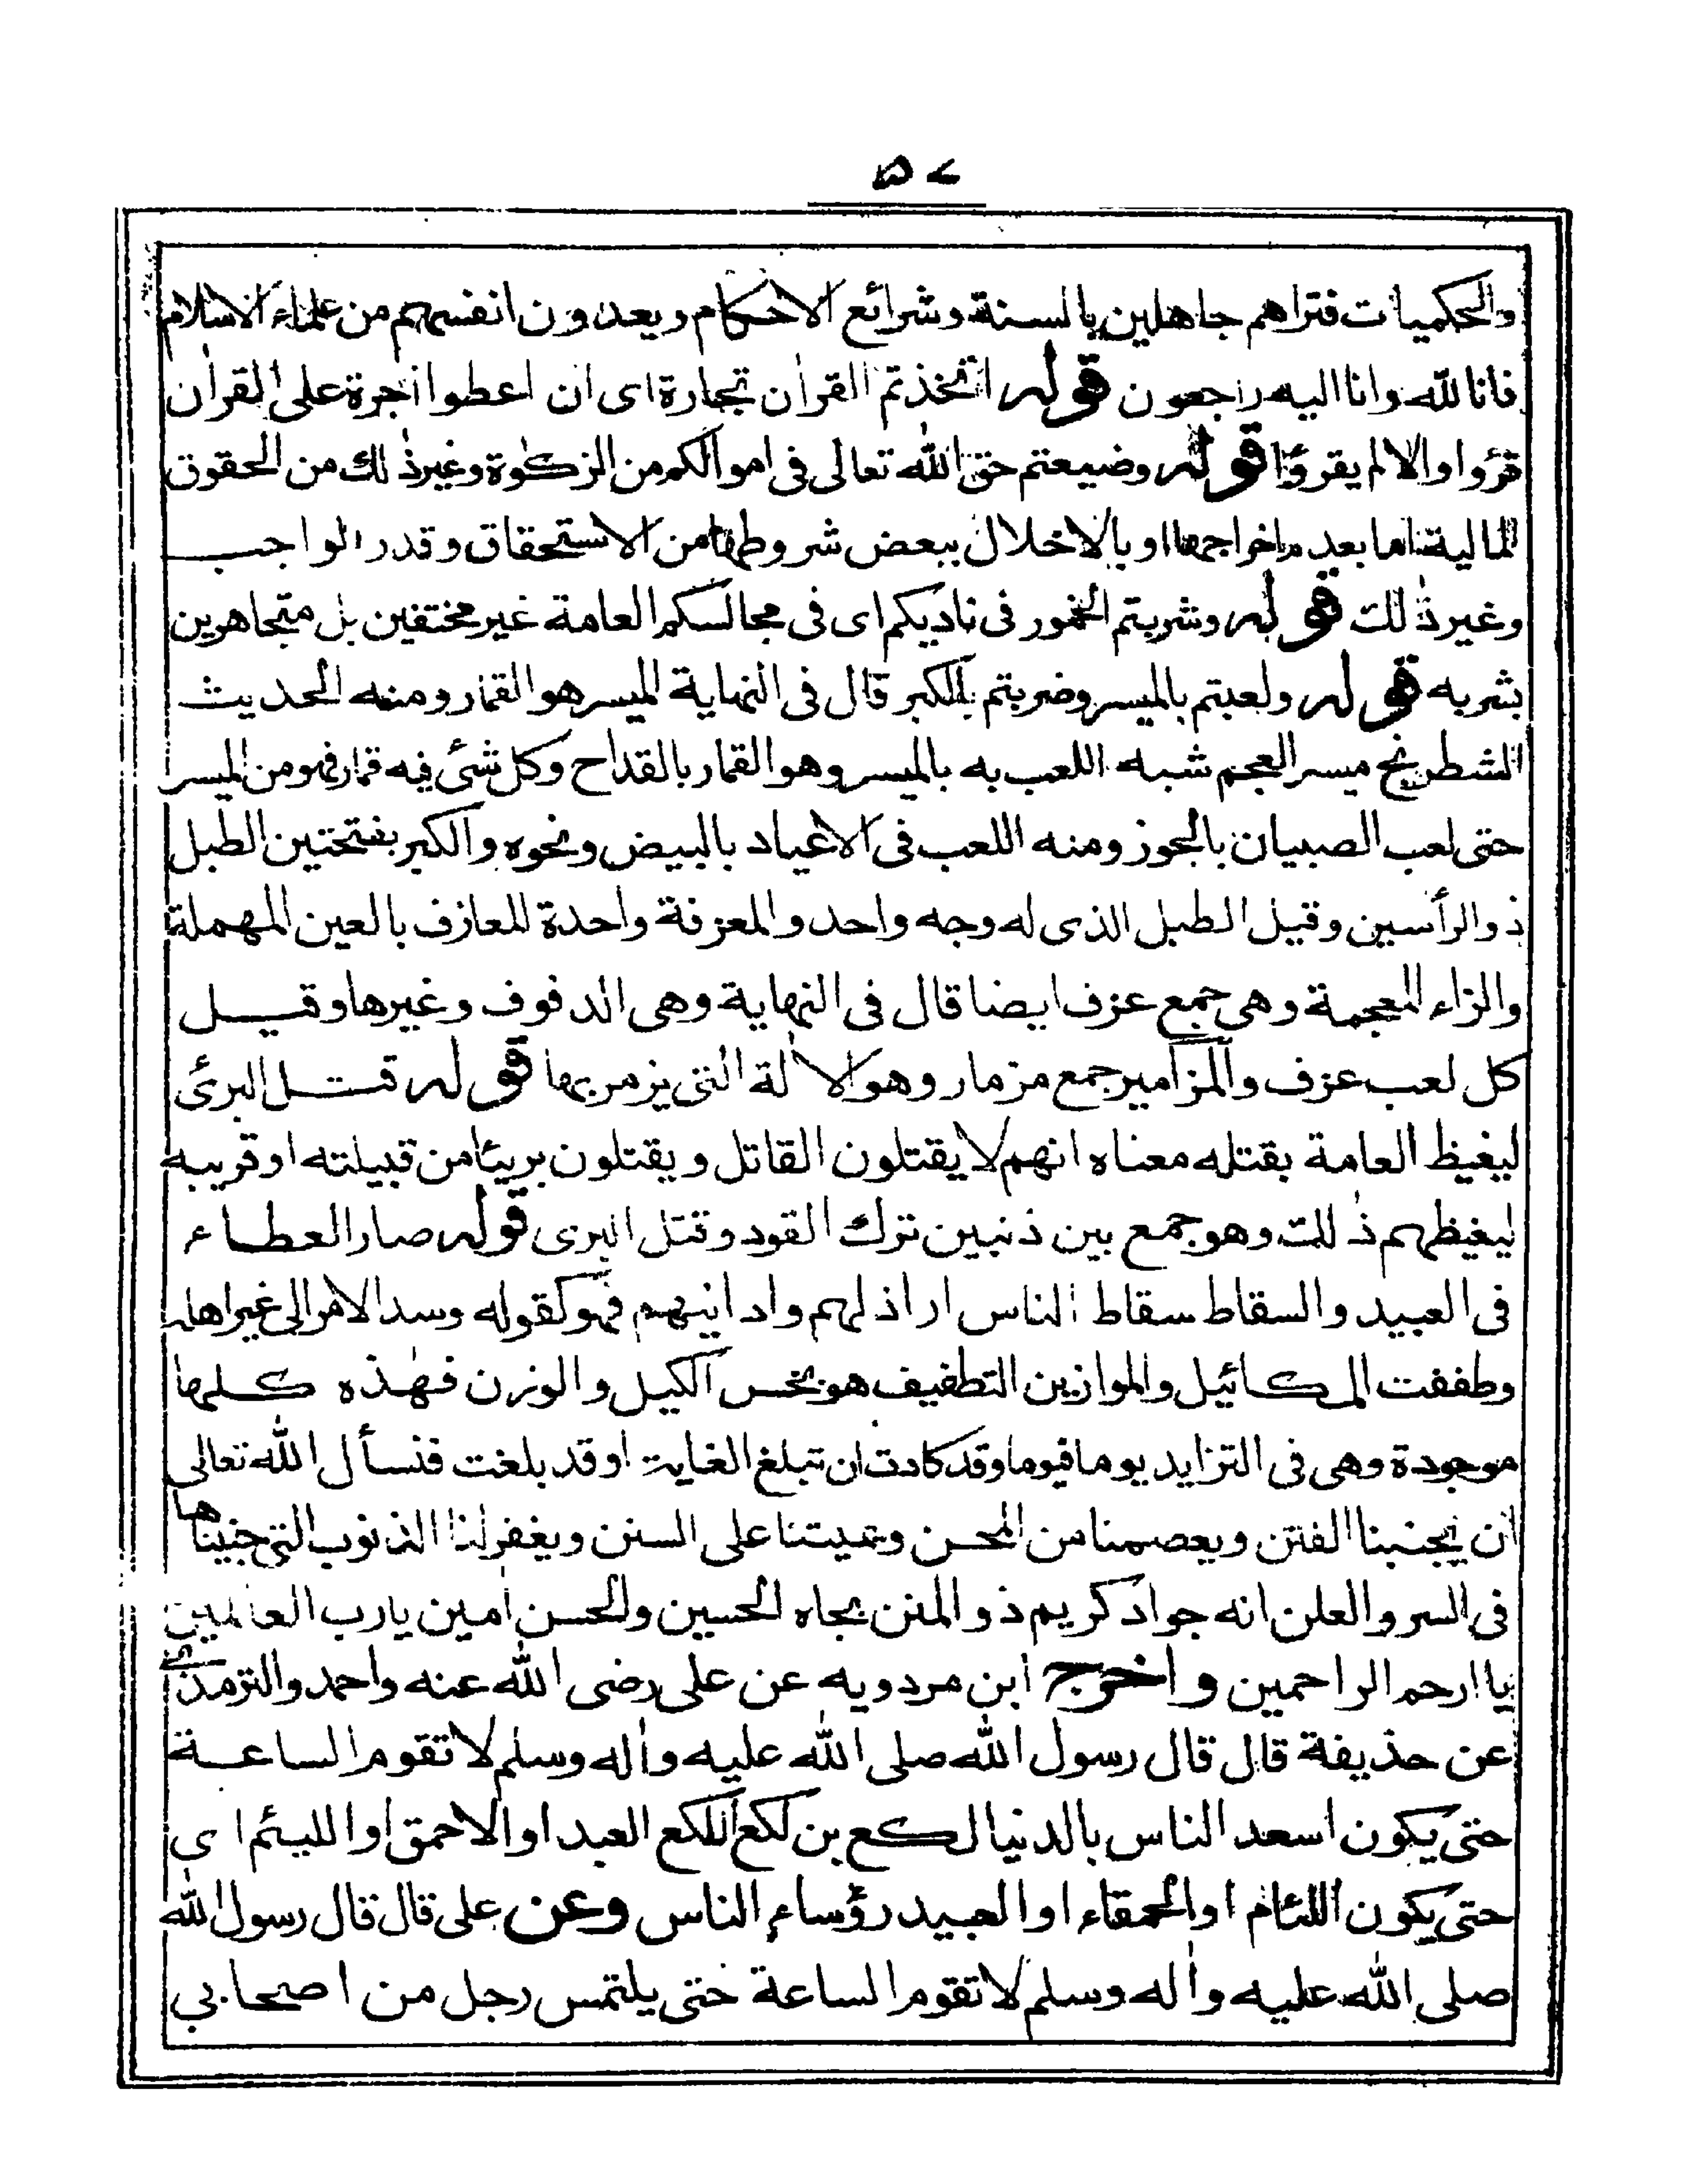 ۵۷
والحكميات فتراهم جاهلين بالسنة وشرائع الاحكام ويعدون انفسهم من علماء الاسلام
فانا لله وانا اليه راجعون قوله اتخذتم القراٰن تجارة اى ان اعطوا اجرة على القراٰن
قرؤا والا لم يقرؤا قوله وضيعتم حق الله تعالى فى اموالكم من الزكوٰة وغير ذٰلك من الحقوق
المالية اما بعدم اخراجها او بالاخلال ببعض شروطها من الاستحقاق وقدر الواجب
وغير ذٰلك قوله وشربتم الخمور فى ناديكم اى فى مجالسكم العامة غير مختفين بل متجاهرين
بشربه قوله ولعبتم بالميسر وضربتم بالكبر قال فى النهاية الميسر هو القمار ومنه الحديث
الشطرنج ميسر العجم شبه اللعب به بالميسر وهو القمار بالقداح وكل شئ فيه قمار فهو من الميسر
حتى لعب الصبيان بالجوز ومنه اللعب فى الاعياد بالبيض ونحوه والكبر بفتحتين الطبل
ذو الرأسين وقيل الطبل الذى له وجه واحد والمعزفة واحدة المعازف بالعين المهملة
والزاء المعجمة وهى جمع عزف ايضا قال فى النهاية وهى الدفوف وغيرها وقيل
كل لعب عزف والمزامير جمع مزمار وهو الاٰلة التى يزمر بها قوله قتل البرئ
ليغيظ العامة بقتله معناه انهم لا يقتلون القاتل ويقتلون بريئا من قبيلته او قريبه
ليغيظهم ذٰلك وهو جمع بين ذنبين ترك القود وقتل البرى قوله صار العطاء
فى العبيد والسقاط سقاط الناس اراذلهم وادانيهم فهو كقوله وسد الامر الى غير اهله
وطففت المكائيل والموازين التطفيف هو بخس الكيل والوزن فهٰذه كلها
موجودة وهى فى التزايد يوما فيوما وقد كادت ان تبلغ الغاية او قد بلغت فنسأل الله تعالى
ان يجنبنا الفتن ويعصمنا من المحن ويميتنا على السنن ويغفر لنا الذنوب التى جنيناها
فى السر والعلن انه جواد كريم ذو المنن بجاه الحسين والحسن اٰمين يا رب العالمين
يا ارحم الراحمين واخرج ابن مردويه عن على رضى الله عنه واحمد والترمذى
عن حذيفة قال قال رسول الله صلى الله عليه واٰله وسلم لا تقوم الساعة
حتى يكون اسعد الناس بالدنيا لكع بن لكع اللكع العبد او الاحمق او اللئيم اى
حتى يكون اللئام او الحمقاء او العبيد رؤساء الناس وعن على قال قال رسول الله
صلى الله عليه واٰله وسلم لا تقوم الساعة حتى يلتمس رجل من اصحابى